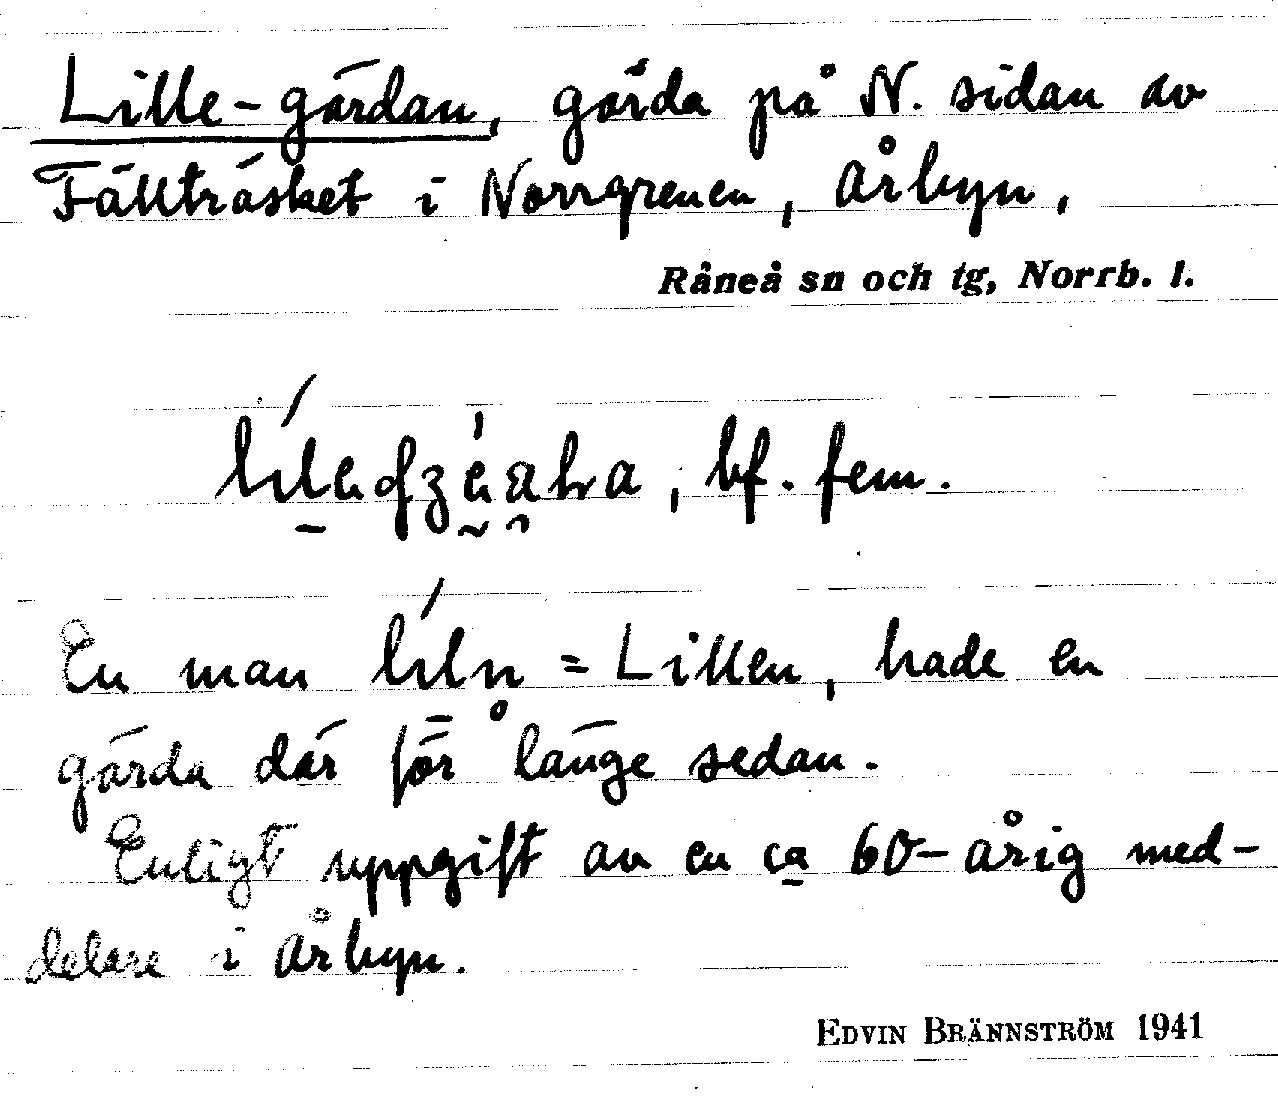 Lille-gärdan, gärda på N. sidan av
Fällträsket i Norrgrenen, Årbyn,
Råneå sn och tg, Norrb. l.
bf. fem.
En man = Lillen, hade en
gärda där för länge sedan.
Enligt uppgift av en ca 60-årig med-
delare i Årbyn.
EDVIN BRÄNNSTRÖM 1941